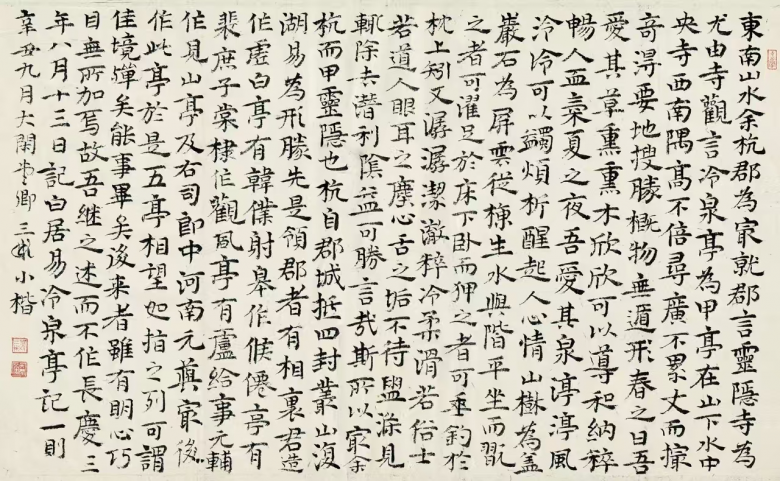 東南山水余杭郡為最就郡言靈隱寺為
尤由寺觀言冷泉亭為甲亭在山下水中
央寺西南隅高不倍尋廣不累丈而撮
奇得要地搜勝概物無遁形春之日吾
愛其草薰薰木欣欣可以導和納粹
暢人血氣夏之夜吾愛其泉渟渟風
泠泠可以蠲煩析酲起人心情山樹為蓋
巖石為屏雲從棟生水與階平坐而翫
之者可濯足於床下臥而狎之者可垂釣於
枕上矧又潺潺潔澈粹冷柔滑若俗士
若道人眼耳之塵心舌之垢不待盥滌見
輒除去潛利陰益可勝言哉斯所以最余
杭而甲靈隱也杭自郡城抵四封叢山復
湖易為形勝先是領郡者有相裏君造
作虛白亭有韓僕射皋作候僊亭有
裴庶子棠棣作觀風亭有盧給事元輔
作見山亭及右司郎中河南元藇最後
作此亭於是五亭相望如指之列可謂
佳境殫矣能事畢矣後來者雖有明心巧
目無所加焉故吾繼之述而不作長慶三
年八月十三日記白居易冷泉亭記一則
辛丑九月大閑堂卿三小楷